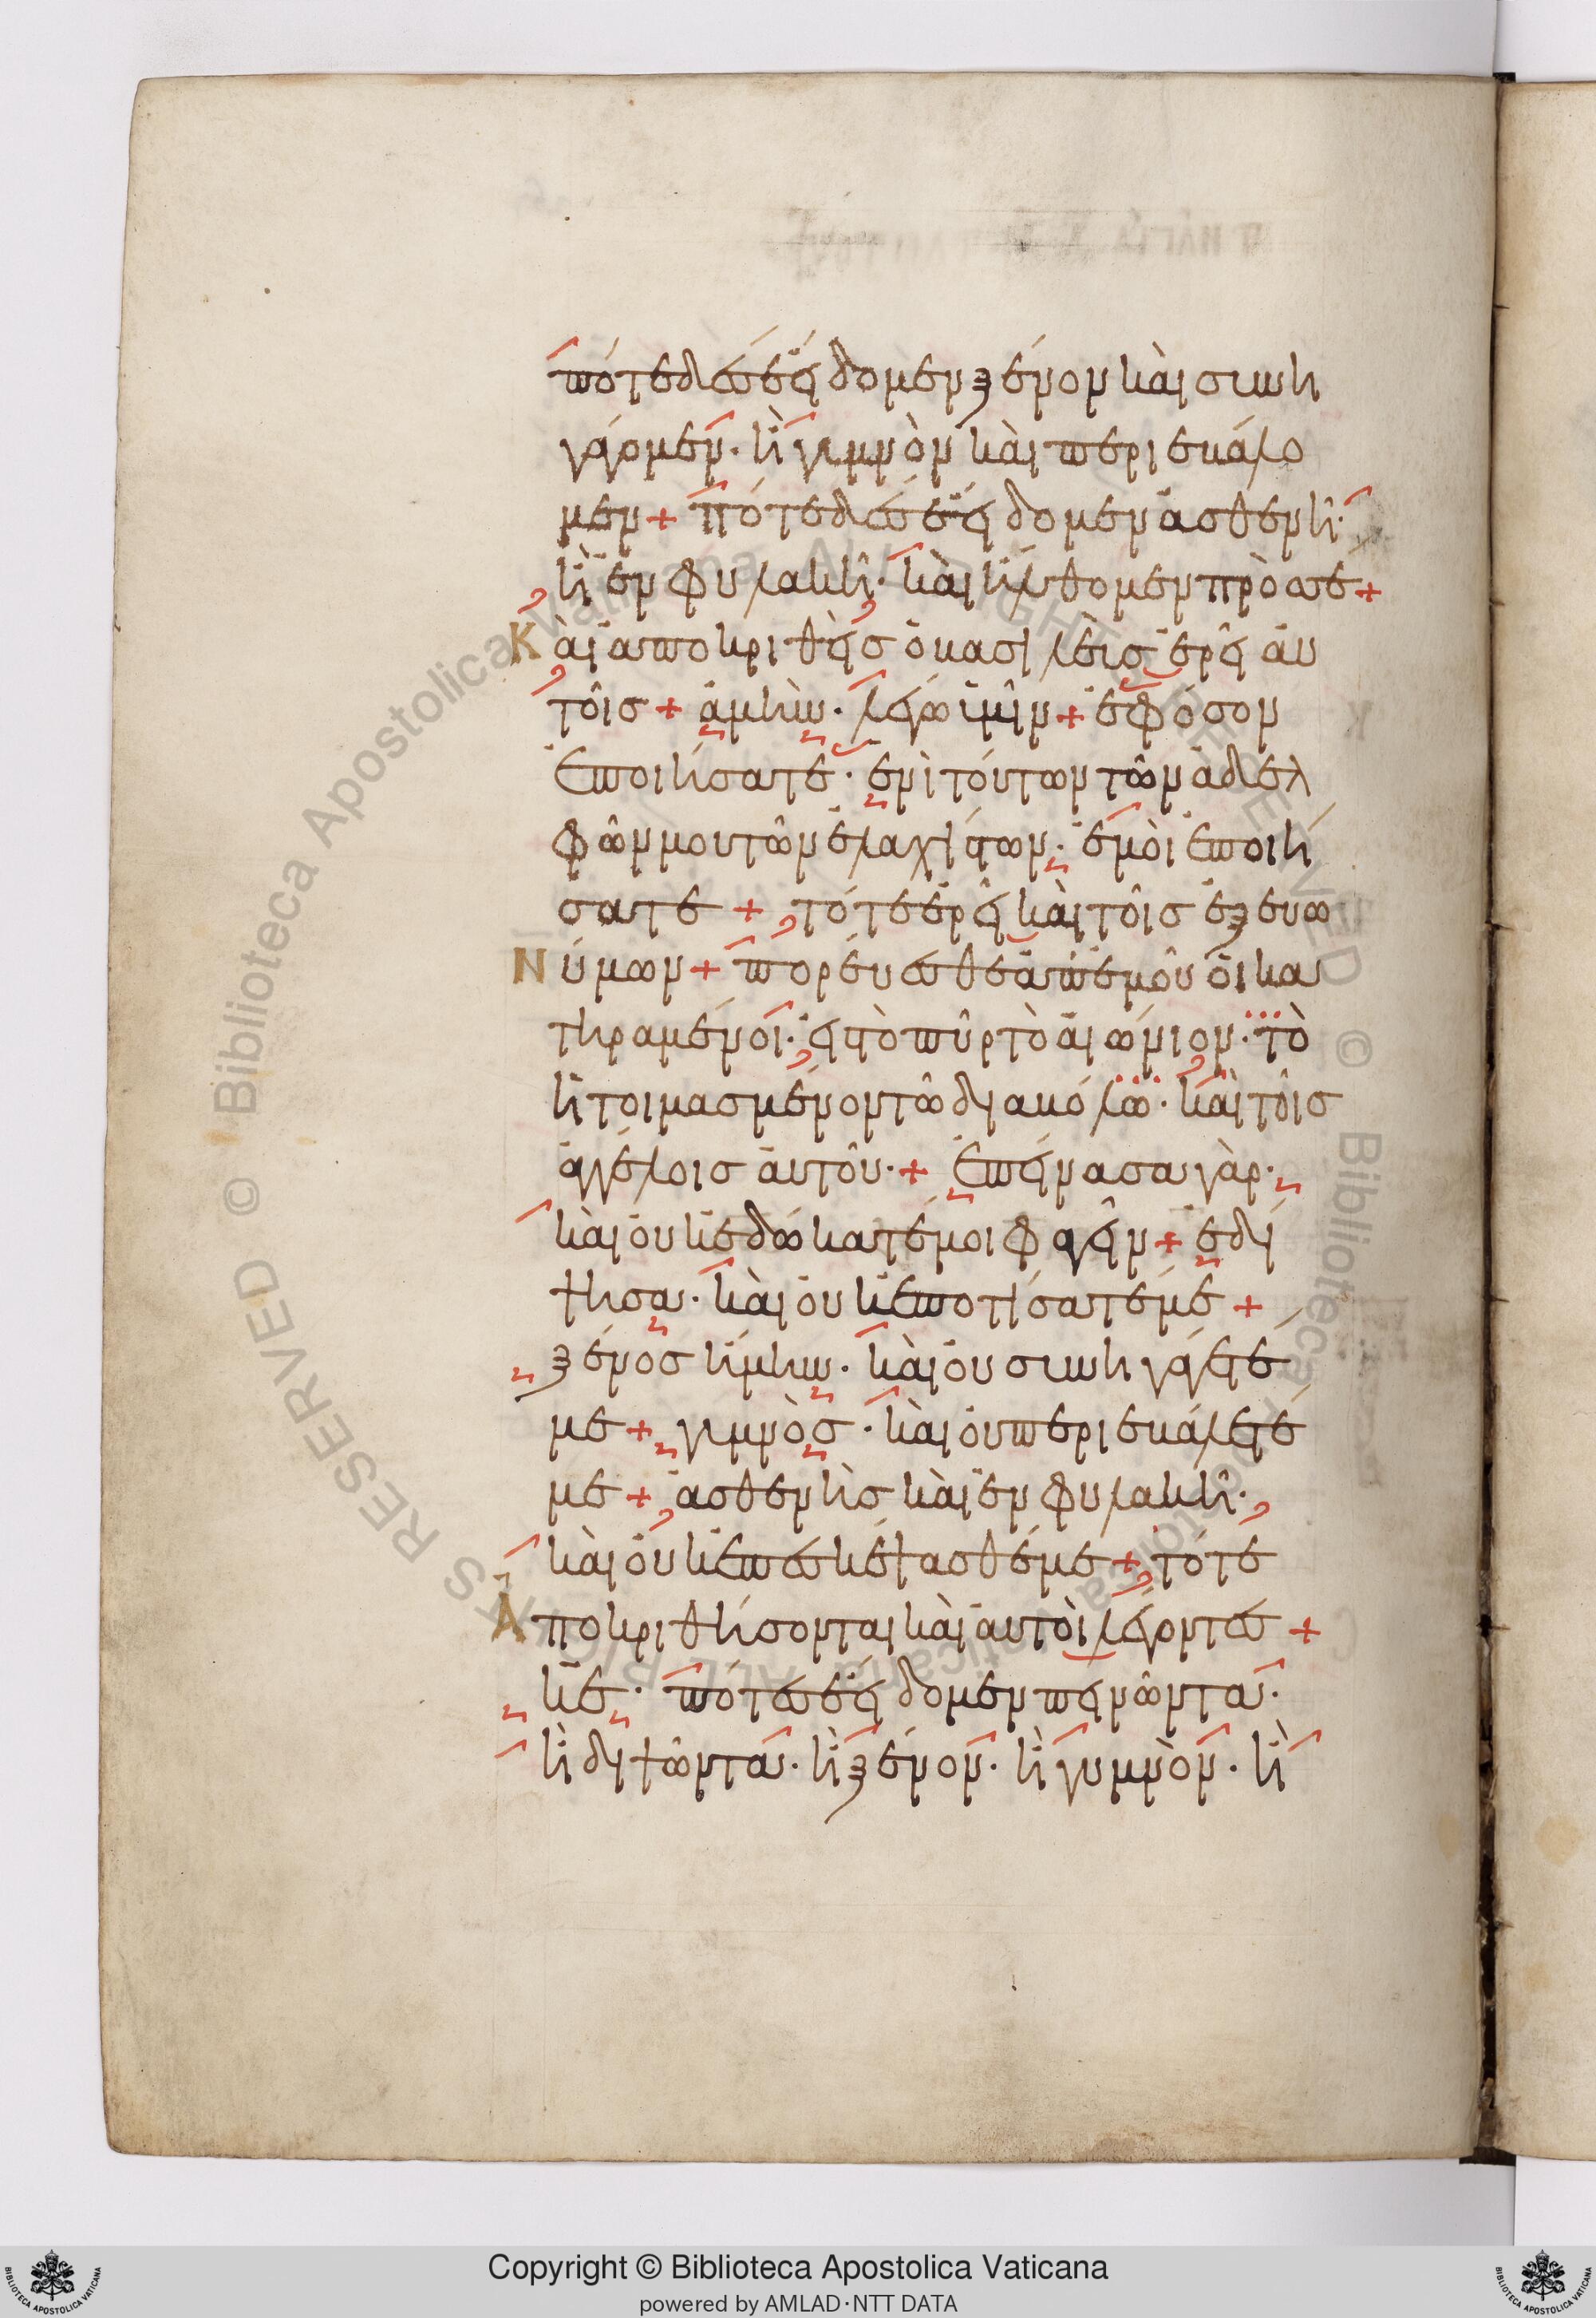 πότε δέ σε εἴδομεν ξένον καὶ συνη
γάγομεν· ἢ γυμνὸν καὶ περιεβάλο
μεν + πότε δέ σε εἴδομεν ἀσθενῆ·
ἢ ἐν φυλακῆ· καὶ ἤλθομεν πρὸς σε +
Καὶ ἀποκριθεὶς ὁ βασιλεὺς ἐρεῖ αὐ
τοῖς + ἀμὴν· λέγω ὑμῖν + ἐφ ὅσον
ἐποιήσατε· ἑνὶ τούτων τῶν ἀδελ
φῶν μου τῶν ἐλαχίστων· ἐμοὶ ἐποιή
σατε + τότε ἐρεῖ καὶ τοῖς ἐξ εὐω
Νύμων + πορεύεσθε ἀπ' ἐμοῦ οἱ κα
τηραμένοι· εἰς τὸ πῦρ τὸ αἰώνιον· τὸ
ἡτοιμασμένον τῶ διαβόλω· καὶ τοῖς
ἀγγέλοις αὐτοῦ· + ἐπείνασα γὰρ·
καὶ οὐκ ἐδώκατέ μοι φαγεῖν + ἐδί
ψησα· καὶ οὐκ ἐποτίσατέ με +
ξένος ἤμην· καὶ οὐ συνηγάγετέ
με + γυμνὸς· καὶ οὐ περιεβάλετέ
με + ἀσθενὴς καὶ ἐν φυλακῆ·
καὶ οὐκ ἐπεσκέψασθέ με + τότε
Ἀποκριθήσονται καὶ αὐτοὶ λέγοντες +
κε· πότε σε εἴδομεν πεινῶντα·
ἢ διψῶντα· ἢ ξένον· ἢ γυμνὸν· ἢ
© Biblioteca Apostolica Vaticana ALL RIGHTS RESERVED
Copyright © Biblioteca Apostolica Vaticana
powered by AMLAD·NTT DATA
BIBLIOTECA APOSTOLICA VATICANA
BIBLIOTECA APOSTOLICA VATICANA